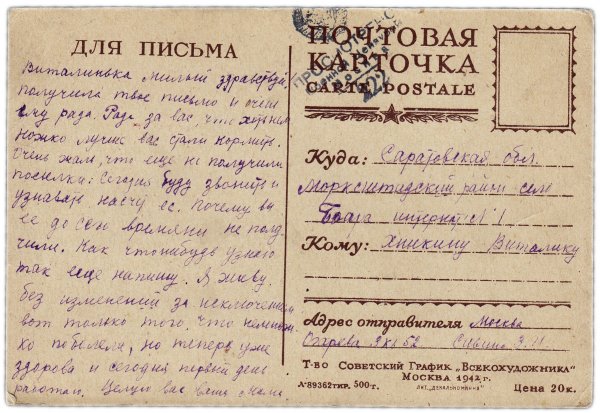 ДЛЯ ПИСЬМА
Виталинька милый здравствуй.
получила твое письмо и очень
ему рада. Рада за вас, что хоть нем
ножко лучше вас стали кормить.
Очень жаль, что еще не получили
посылки. Сегодня буду звонить и
узнавать насчу ее. Почему вы
ее до сих времяни не полу
чили. Как чтонибудь узнаю
так еще напишу. Я живу
без изменений за исключением
вот только того, что немнож
ко поболела, но теперь уже
здорова и сегодня первый день
работаю. Целую вас ваша Мама.
ПРОСМОТРЕНО
Военной Цензурой
222
ПОЧТОВАЯ
КАРТОЧКА
CARTE POSTALE
Куда: Саратовская обл.
Марксштадский район село
интернат №1
Кому: Хникину Виталику
Адрес отправителя Москва
Огарева
Т-во Советский График „Всекохудожника“
Москва 1942 г.
Л-89362 тир. 500 т. лит. „декалькомания“ Цена 20 к.